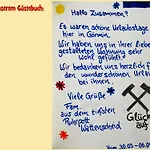 unserem Gästebuch:
Hallo Zusammen!
Es waren schöne Urlaubstage
hier in Görmin.
Wir haben uns in Ihrer liebevoll
gestalteten Wohnung sehr
wohl gefühlt.
Wir bedanken uns herzlich für
den wunderschönen Urlaub
bei ihnen.
Viele Grüße
Fam.
aus dem tiefsten
Ruhrpott
Wattenscheid
Glück
auf
Vom 30.05.-06.0